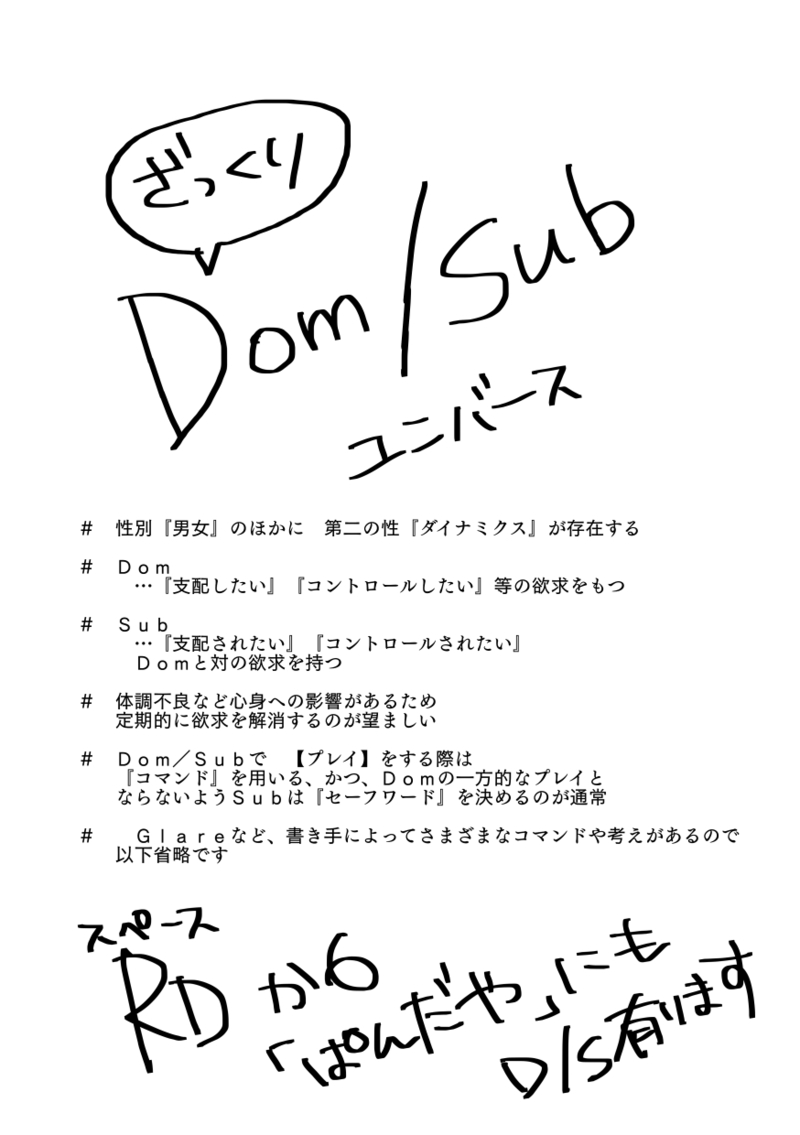 ざっくり
Dom/Sub
ユニバース
#　性別『男女』のほかに　第二の性『ダイナミクス』が存在する
#　Ｄｏｍ
…『支配したい』『コントロールしたい』等の欲求をもつ
#　Ｓｕｂ
…『支配されたい』『コントロールされたい』
Ｄｏｍと対の欲求を持つ
#　体調不良など心身への影響があるため
定期的に欲求を解消するのが望ましい
#　Ｄｏｍ／Ｓｕｂで　【プレイ】をする際は
『コマンド』を用いる、かつ、Ｄｏｍの一方的なプレイと
ならないようＳｕｂは『セーフワード』を決めるのが通常
#　Ｇｌａｒｅなど、書き手によってさまざまなコマンドや考えがあるので
以下省略です
スペース
RDか6
「ぱんだや」にも
D/S有ります